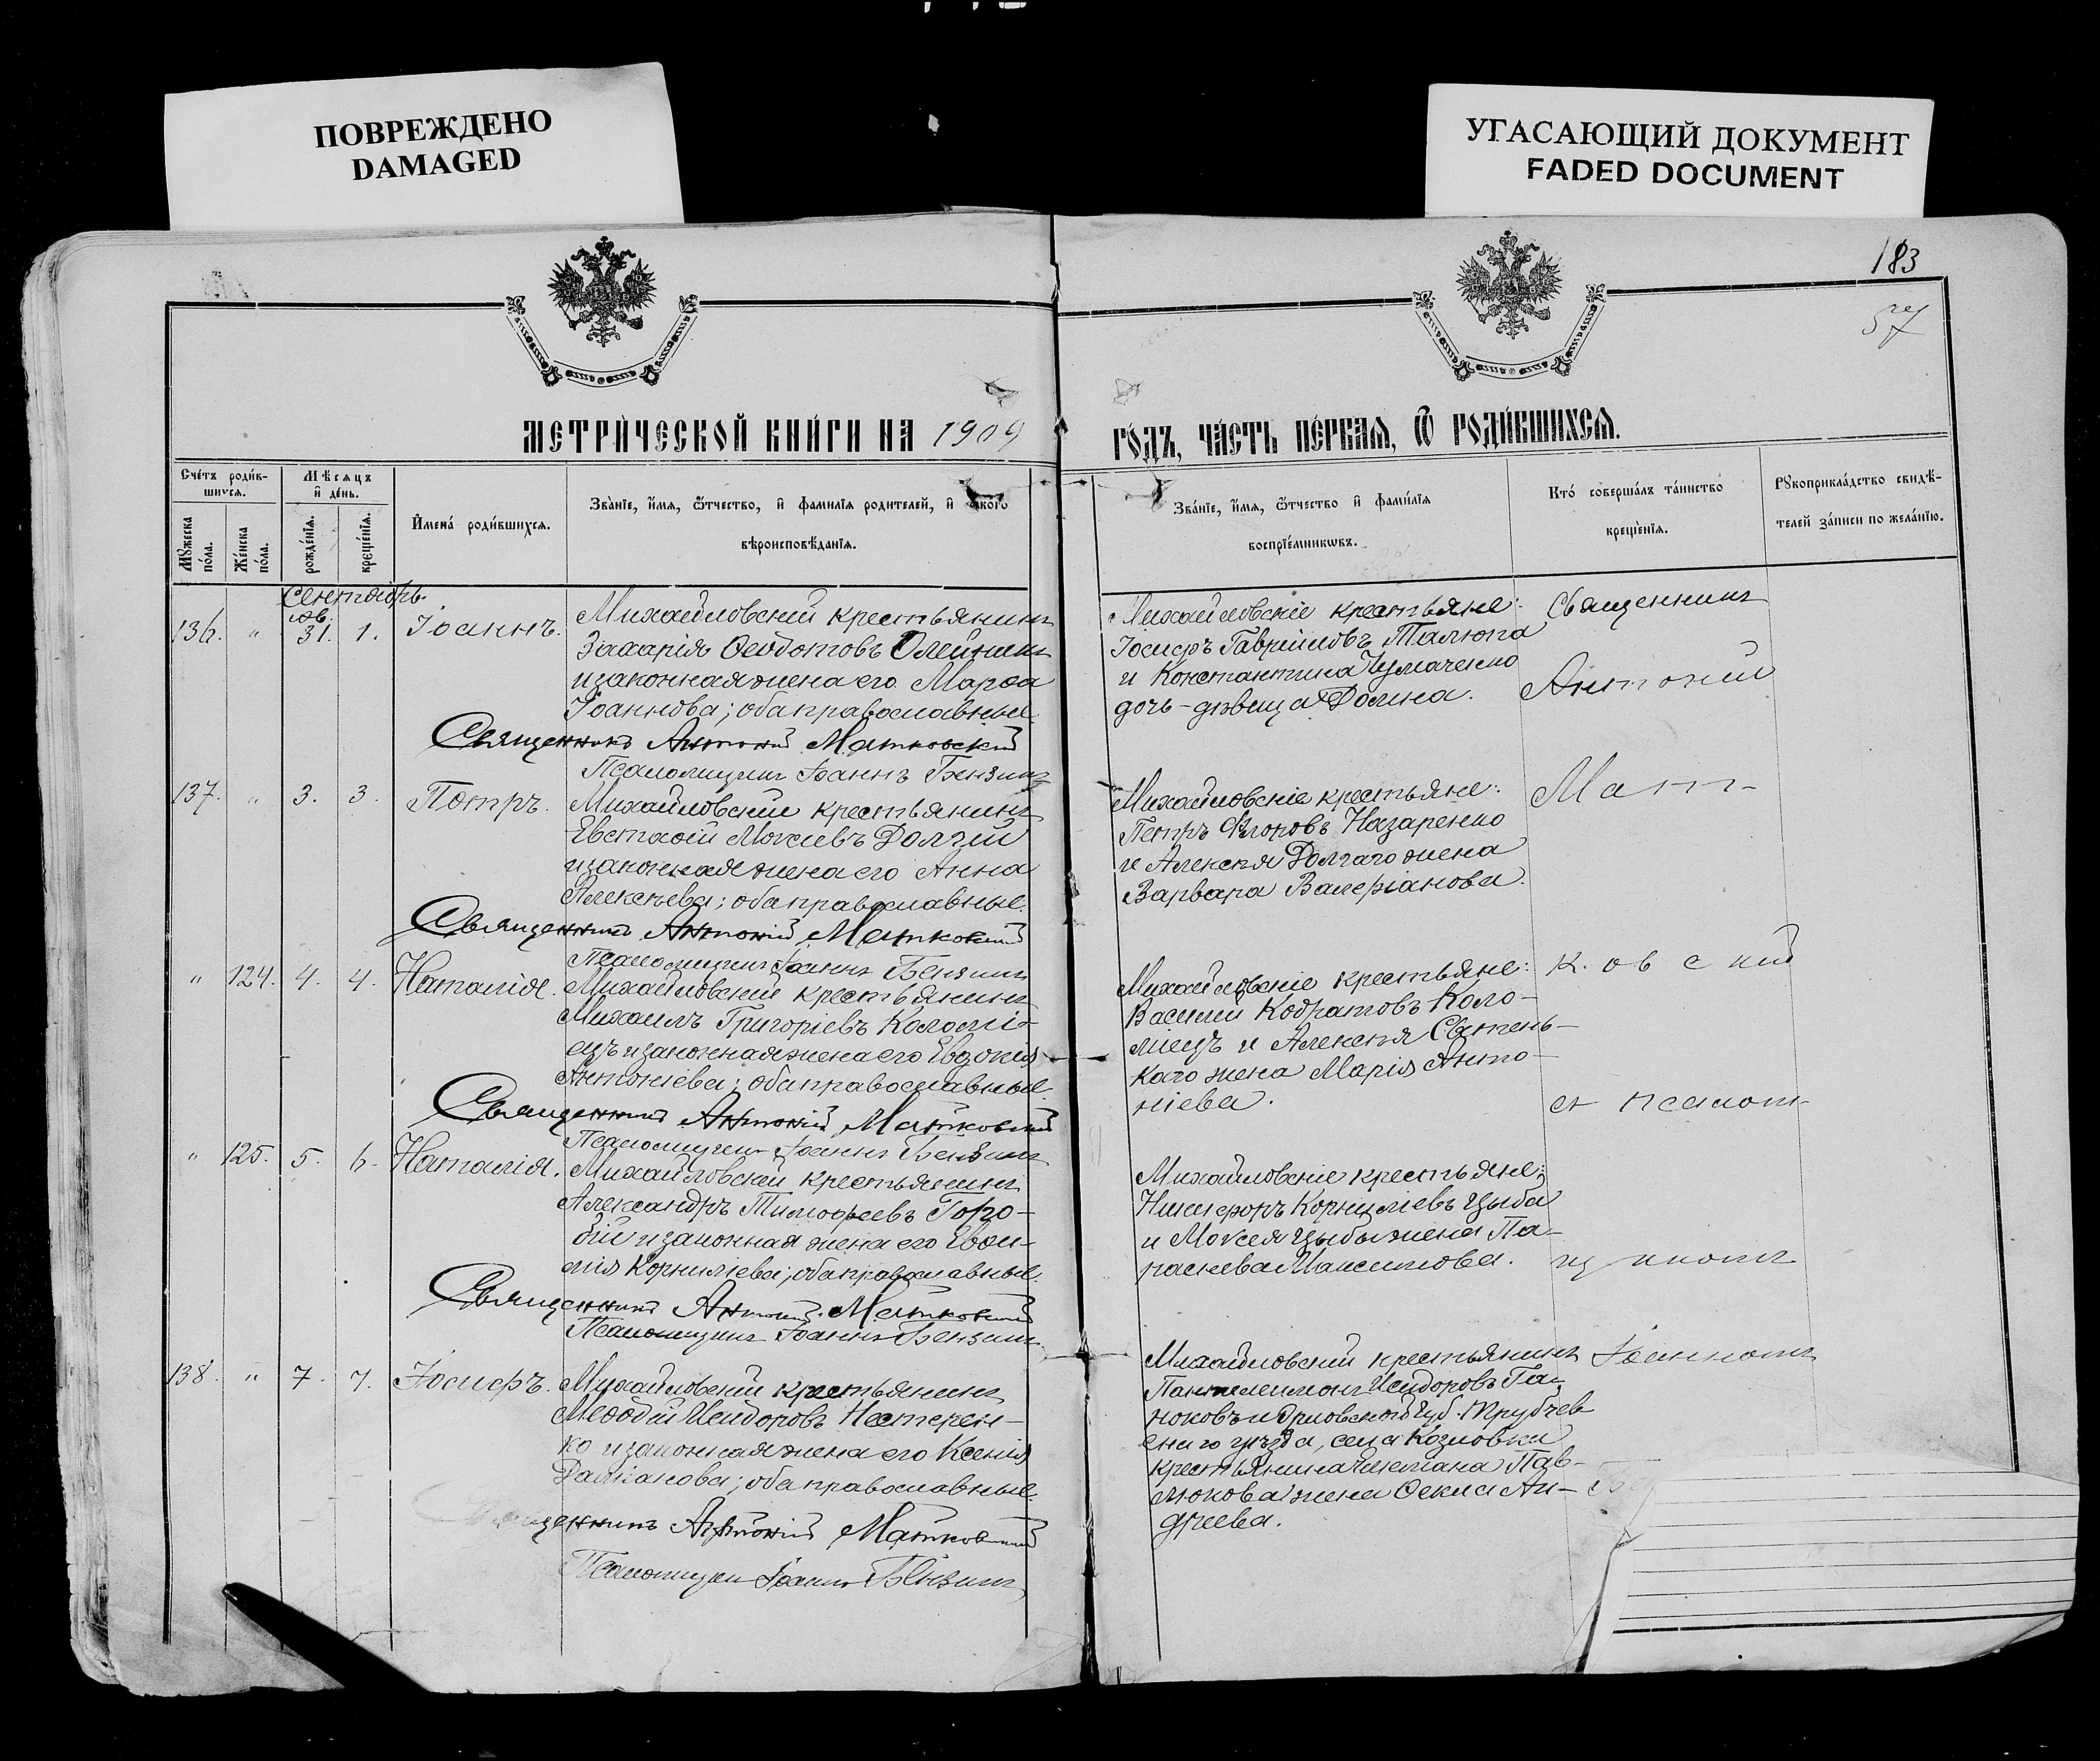 ПОВРЕЖДЕНО
DAMAGED
УГАСАЮЩИЙ ДОКУМЕНТ
FADED DOCUMENT
183
МЕТРИ́ЧЕСКОЙ КНИ́ГИ НА 1909
ГО́ДЪ, ЧА́СТЬ ПЕ́РВАѦ, Ѿ РОДИ́ВШИХСѦ.
Сче́тъ роди́в-
шихсѧ.
Мѣсѧцъ
и҆ де́нь.
Мꙋжеска
по́ла.
Же́нска
по́ла.
рожде́нїѧ.
креще́нїѧ.
И҆мена́ роди́вшихсѧ.
Зва́нїе, и҆́мѧ, ѻ҆́тчество, и҆ фами́лїѧ роди́телей, и҆ како́гѡ
вѣроисповѣ́данїѧ.
Зва́нїе, и҆́мѧ, ѻ҆́тчество и҆ фами́лїѧ
воспрїе́мникѡвъ.
Кто́ соверша́лъ та́инство
креще́нїѧ.
Рꙋкоприкла́дство свидѣ́-
телей за́писи по жела́нїю.
Сентябрь
136. " 31. 1. Іоаннъ.
Михайловскій крестьянинъ
Захарія Ѳеодотовъ Олейникъ
и законная жена его Марѳа
Іоаннова; оба православные.
Священникъ Антоній Матковскій
Псаломщикъ Іоаннъ Бензинъ
Михайловскіе крестьяне:
Іосифъ Гавріиловъ Талюпа
и Константина Чумаченко
дочь-дѣвица Домна.
Священникъ
Антоній
137. " 3. 3. Петръ.
Михайловскій крестьянинъ
Евстаѳій Мокіевъ Долгій
и законная жена его Анна
Алексѣева; оба православные.
Священникъ Антоній Матковскій
Псаломщикъ Іоаннъ Бензинъ
Михайловскіе крестьяне:
Петръ Флоровъ Назаренко
и Алексѣя Долгаго жена
Варвара Валеріанова.
Мат-
" 124. 4. 4. Наталія.
Михайловскій крестьянинъ
Михаилъ Григоріевъ Коломі-
ецъ и законная жена его Евдокія
Антоніева; оба православные.
Священникъ Антоній Матковскій
Псаломщикъ Іоаннъ Бензинъ
Михайловскіе крестьяне:
Василій Кодратовъ Коло-
міецъ и Алексѣя Свѣтень-
каго жена Марія Анто-
ніева.
ковскій
съ псалом-
" 125. 5. 6. Наталія.
Михайловскій крестьянинъ
Александръ Тимоѳеевъ Горо-
бій и законная жена его Евѳи-
мія Корниліева; оба православные.
Священникъ Антоній Матковскій
Псаломщикъ Іоаннъ Бензинъ
Михайловскіе крестьяне:
Никифоръ Корниліевъ Цыба
и Мокея Цыбы жена Па-
раскева Максимова.
щикомъ
138. " 7. 7. Іосифъ.
Михайловскій крестьянинъ
Меѳодій Исидоровъ Нестерен-
ко и законная жена его Ксенія
Даміанова; оба православные.
Священникъ Антоній Матковскій
Псаломщикъ Іоаннъ Бензинъ
Михайловскій крестьянинъ
Пантелеимонъ Исидоровъ Га-
ноковъ и Орловской губ. Трубчев
скаго уѣзда, села Козловки
крестьянина Пав-
люкова жена Ѳекла Ан-
дреева.
Іоанномъ